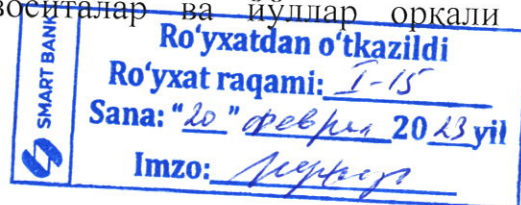 воситалар ва йўллар орқали
SMART BANK
Ro'yxatdan o'tkazildi
Ro'yxat raqami: I-15
Sana: "20" феврал 2023 yil
Imzo: